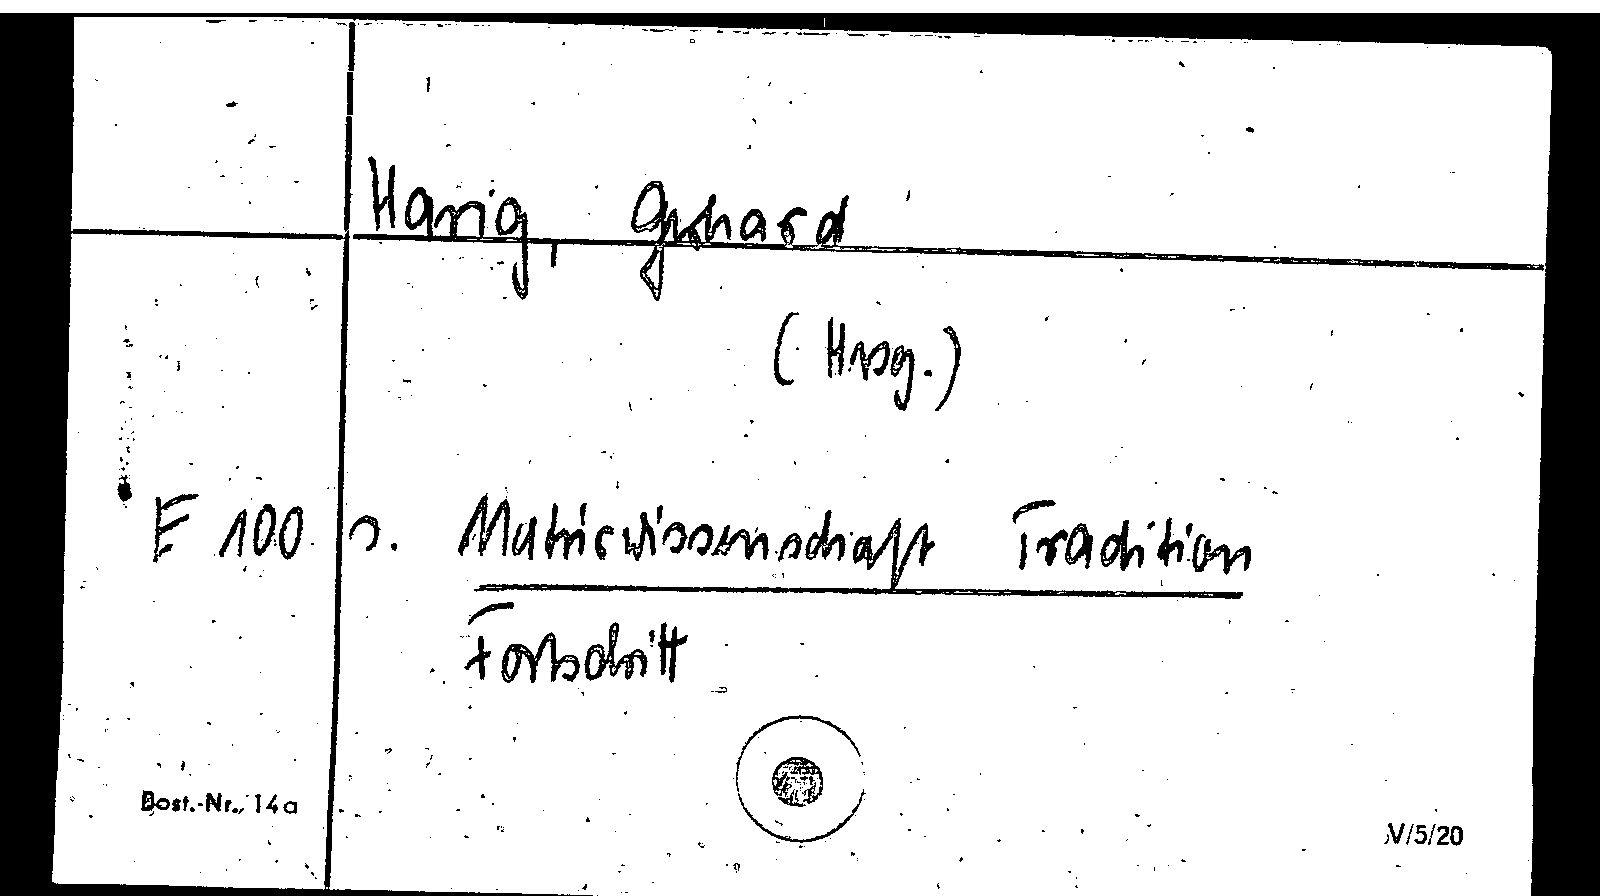 Harig, Gerhard
(Hrsg.)
E 100 s. Naturwissenschaft Tradition
Fortschritt
Best.-Nr. 14a
V/5/20